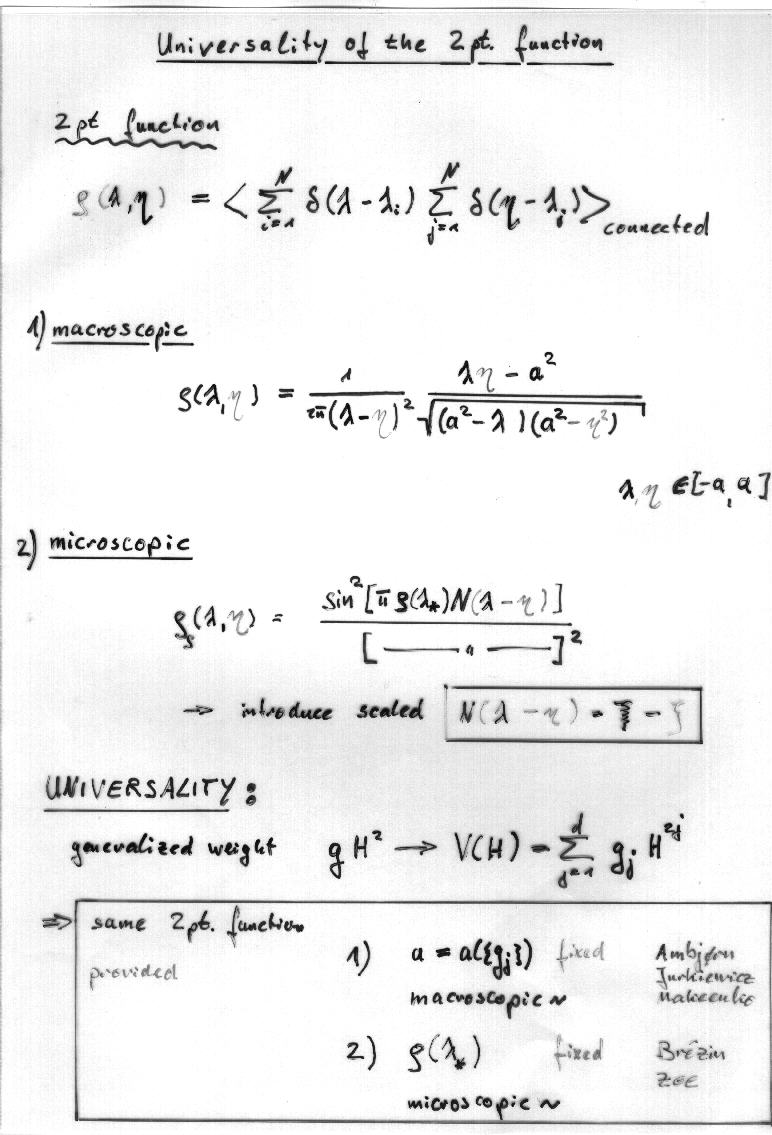 Universality of the 2pt. function
2pt function
ρ(λ,η) = < Σ_{i=1}^{N} δ(λ-λ_i) Σ_{j=1}^{N} δ(η-λ_j) >_connected
1) macroscopic
ρ(λ,η) = 1/(2π(λ-η)²) (λη - a²)/√((a²-λ )(a²-η²))
λ,η ∈[-a,a]
2) microscopic
ρ_s(λ,η) = sin²[π ρ(λ_*)N(λ-η)] / [ —— " —— ]²
→ introduce scaled N(λ-η) = ξ - ζ
UNIVERSALITY:
generalized weight g H² → V(H) = Σ_{j=1}^{d} g_j H^{2j}
⇒ same 2pt. function
provided
1) a = a({g_j}) fixed Ambjørn
Jurkiewicz
macroscopic ~ Makeenko
2) ρ(λ_*) fixed Brézin
Zee
microscopic ~